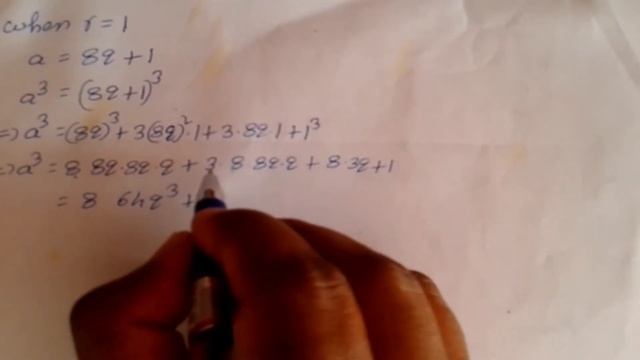 when r = 1
a = 8q + 1
a³ = (8q+1)³
⇒ a³ = (8q)³ + 3(8q)²·1 + 3·8q·1 + 1³
⇒ a³ = 8, 8q·8q·q + 3·8 8q·q + 8·3q + 1
= 8 64q³ +